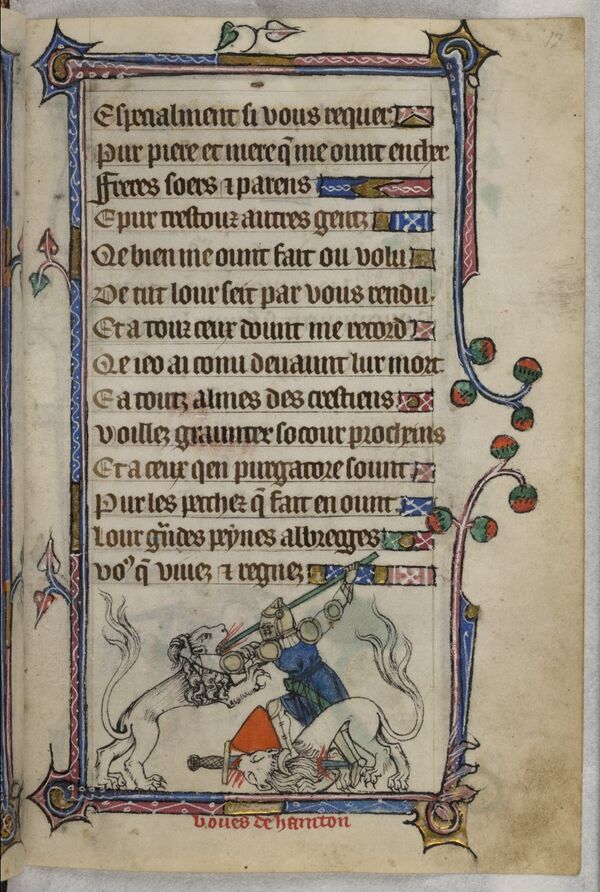 12
Especialment si vous requer
Pur piere et mere q̄ me ount en cher
Freres soers ⁊ parens
E pur trestouz autres gentz
Qe bien me ount fait ou volu
De tut lour seit par vous rendu.
Et a touz ceux dount me record
Qe ieo ai conu deuaunt lur mort
E a toutz almes des crestiens
Voillez graunter socour procheins
Et a ceux qen purgatore sount
Pur les pecchez q̄ fait en ount.
Lour gñdes peynes albregges
vo⁹ q̄ viuez ⁊ regnez
boues de hamton